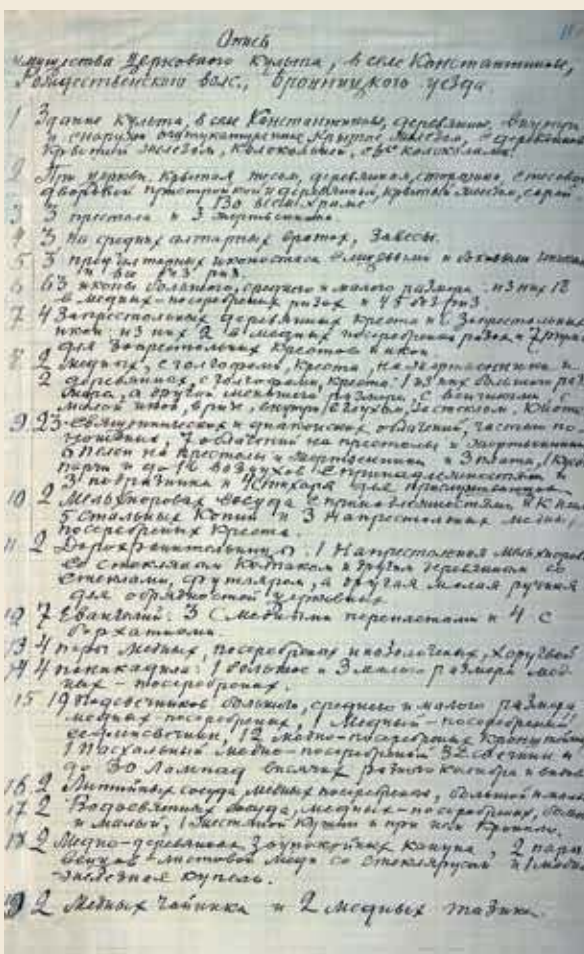 Опись
имущества Церковного Культа, в селе Константинове,
Рождественской волс., Бронницкого уезда
1 Здание Культа, в селе Константинове, деревянное, внутри
и снаружи оштукатуренное, крытое железом, с деревянной
крытой железом, колокольней, с колоколами.
2 При церкви, крытая тесом, деревянная, сторожка, с тесовой
дворовой пристройкой и деревянный, крытый железом, сарай
Во всем храме:
3 3 престола и 3 жертвенника.
4 3 на средних алтарных вратах, Завесы.
5 3 предалтарных иконостаса с лицевыми и боковыми
и без риз.
6 63 иконы большого, среднего и малого размера из них 18
в медных-посеребреных ризах и 45 без риз
7 4 Запрестольных деревянных креста и Запрестольных
икон из них 2 в медных посеребреных ризах и
для Запрестольных Крестов и икон
8 2 медных, с голгофами, креста, на жертвеннике и
2 деревянных, с голгофами, креста: 1 из них большого раз
мера, а другой меньшего размера, с
малой иконой, в ризе, внутри, за стеклом.
9 23 священнических и диаконских облачений, частью по-
ношенных, 7 облачений на престолы и жертвенники
6 пелен на престолы и жертвенники и 3 плата, 1
парчи и до 12 воздухов с принадлежностями и
3 подризника и 4 стихаря для
10 2 Мельхиоровых сосуда с принадлежностями к ним
5 Стальных Копий и 3 Напрестольных медных,
посеребреных Креста.
11 2 Дарохранительницы: 1 Напрестольная мельхиоровая
со стеклянным Колпаком и другим деревянным со
стеклами, футляром, а другая малая ручная
для
12 7 Евангелий: 3 с медными переплетами и 4 с
бархатными
13 4 пары медных, посеребреных и позолоченых, хоругвей
14 4 паникадила: 1 большое и 3 малого размера мед-
ных-посеребреных.
15 19 Подсвечников большого, среднего и малого размера
медных-посеребреных, 1 медный-посеребреный
семисвечник, 12 медно-посеребреных Кронштейнов
1 Пасхальный медно-посеребреный 3х свечник и
до 30 Лампад висячих разного калибра и
16 2 Литийных сосуда медных посеребреных, большой и малый
17 2 Водосвятных сосуда, медных-посеребреных, большой
и малый, 1 жестяной Кувшин и при нем Кропило.
18 2 Медно-деревянных Заупокойных кануна, 2 пары
венцов-листовой меди со стеклярусом и 1 медно
-железная купель.
19 2 Медных чайника и 2 медных тазика.